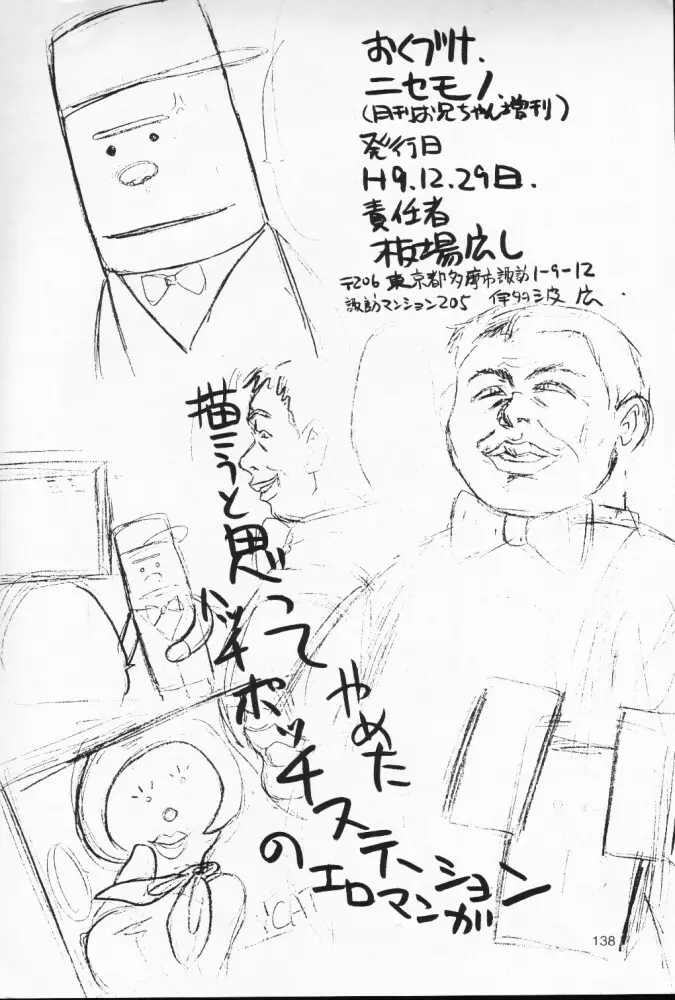 おくづけ、
ニセモノ。
(月刊お兄ちゃん増刊)
発行日
H9.12.29日.
責任者
板場広し
〒206 東京都多摩市諏訪1-9-12
諏訪マンション205 伊多波 広
描こうと思って
やめた
ハッチポッチステーション
の
エロマンガ
CHT
138